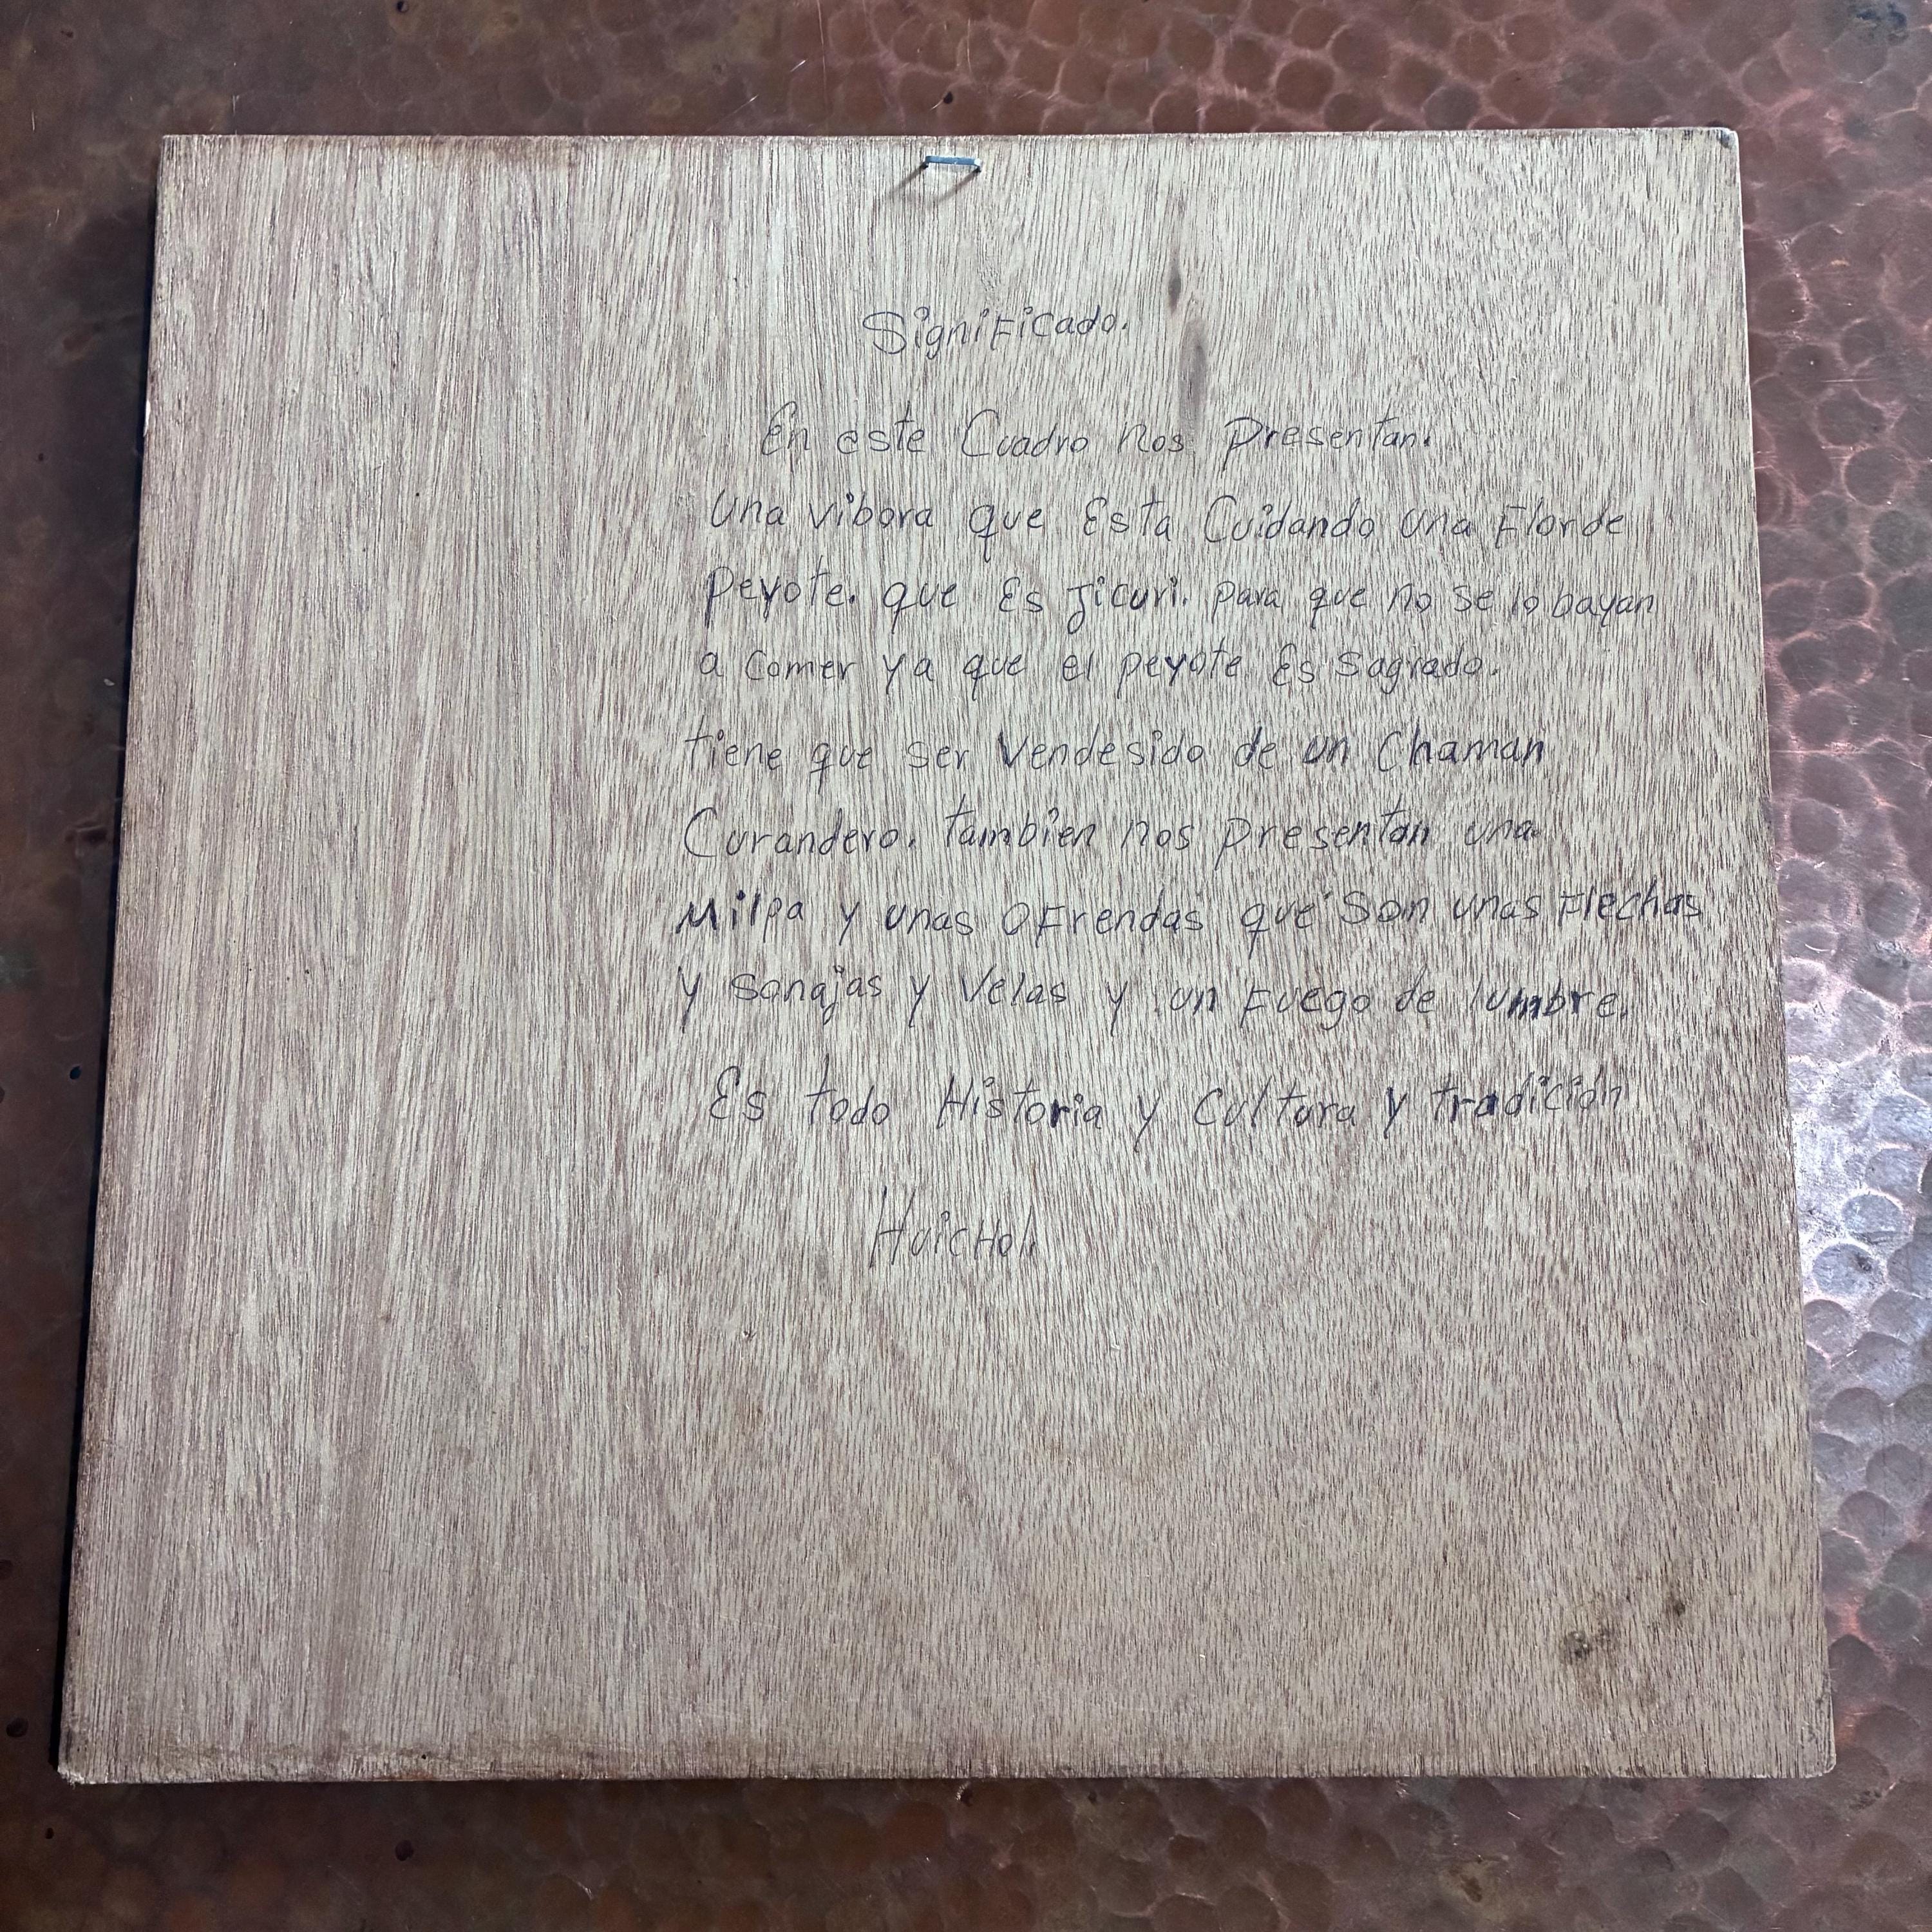 Significado.
En este Cuadro nos presentan.
una vibora que Esta Cuidando una Flor de
peyote. que Es Jicuri. para que no se lo bayan
a comer ya que el peyote Es sagrado.
tiene que ser Vendesido de un Chaman
Curandero. tambien nos presentan una
Milpa y unas OFrendas que son unas Flechas
y sonajas y Velas y un Fuego de lumbre.
Es todo Historia y Cultura y tradición
HuicHol.